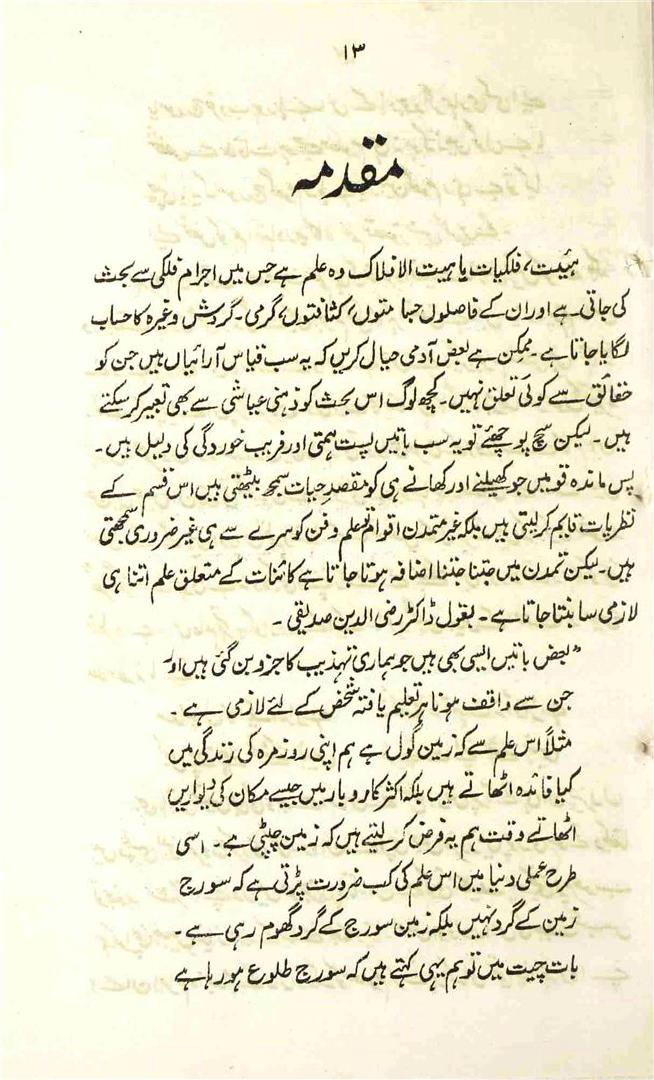 ۱۳
مقدمہ
ہئیت، فلکیات یا ہیت الافلاک وہ علم ہے جس میں اجرام فلکی سے بحث
کی جاتی ہے اور ان کے فاصلوں جسا متوں، کثافتوں، گرمی۔ گردش وغیرہ کا حساب
لگایا جاتا ہے۔ ممکن ہے بعض آدمی خیال کریں کہ یہ سب قیاس آرائیاں ہیں جن کو
حقائق سے کوئی تعلق نہیں۔ کچھ لوگ اس بحث کو ذہنی عیاشی سے بھی تعبیر کر سکتے
ہیں۔ لیکن سچ پوچھئے تو یہ سب باتیں پست ہمتی اور فریب خوردگی کی دلیل ہیں۔
پس ماندہ قومیں جو کھیلنے اور کھانے ہی کو مقصدِ حیات سمجھ بیٹھتی ہیں اس قسم کے
نظریات قایم کر لیتی ہیں بلکہ غیر متمدن اقوام تو علم و فن کو سرے سے ہی غیر ضروری سمجھتی
ہیں۔ لیکن تمدن میں جتنا جتنا اضافہ ہوتا جاتا ہے کائنات کے متعلق علم اتنا ہی
لازمی سا بنتا جاتا ہے۔ بقول ڈاکٹر رضی الدین صدیقی۔
”بعض باتیں ایسی بھی ہیں جو ہماری تہذیب کا جزو بن گئی ہیں اور
جن سے واقف ہونا ہر تعلیم یافتہ شخص کے لئے لازمی ہے۔
مثلاً اس علم سے کہ زمین گول ہے ہم اپنی روزمرہ کی زندگی میں
کیا فائدہ اٹھاتے ہیں بلکہ اکثر کاروبار میں جیسے مکان کی دیواریں
اٹھاتے وقت ہم یہ فرض کر لیتے ہیں کہ زمین چپٹی ہے۔ اسی
طرح عملی دنیا میں اس علم کی کب ضرورت پڑتی ہے کہ سورج
زمین کے گرد نہیں بلکہ زمین سورج کے گرد گھوم رہی ہے۔
بات چیت میں تو ہم یہی کہتے ہیں کہ سورج طلوع ہو رہا ہے